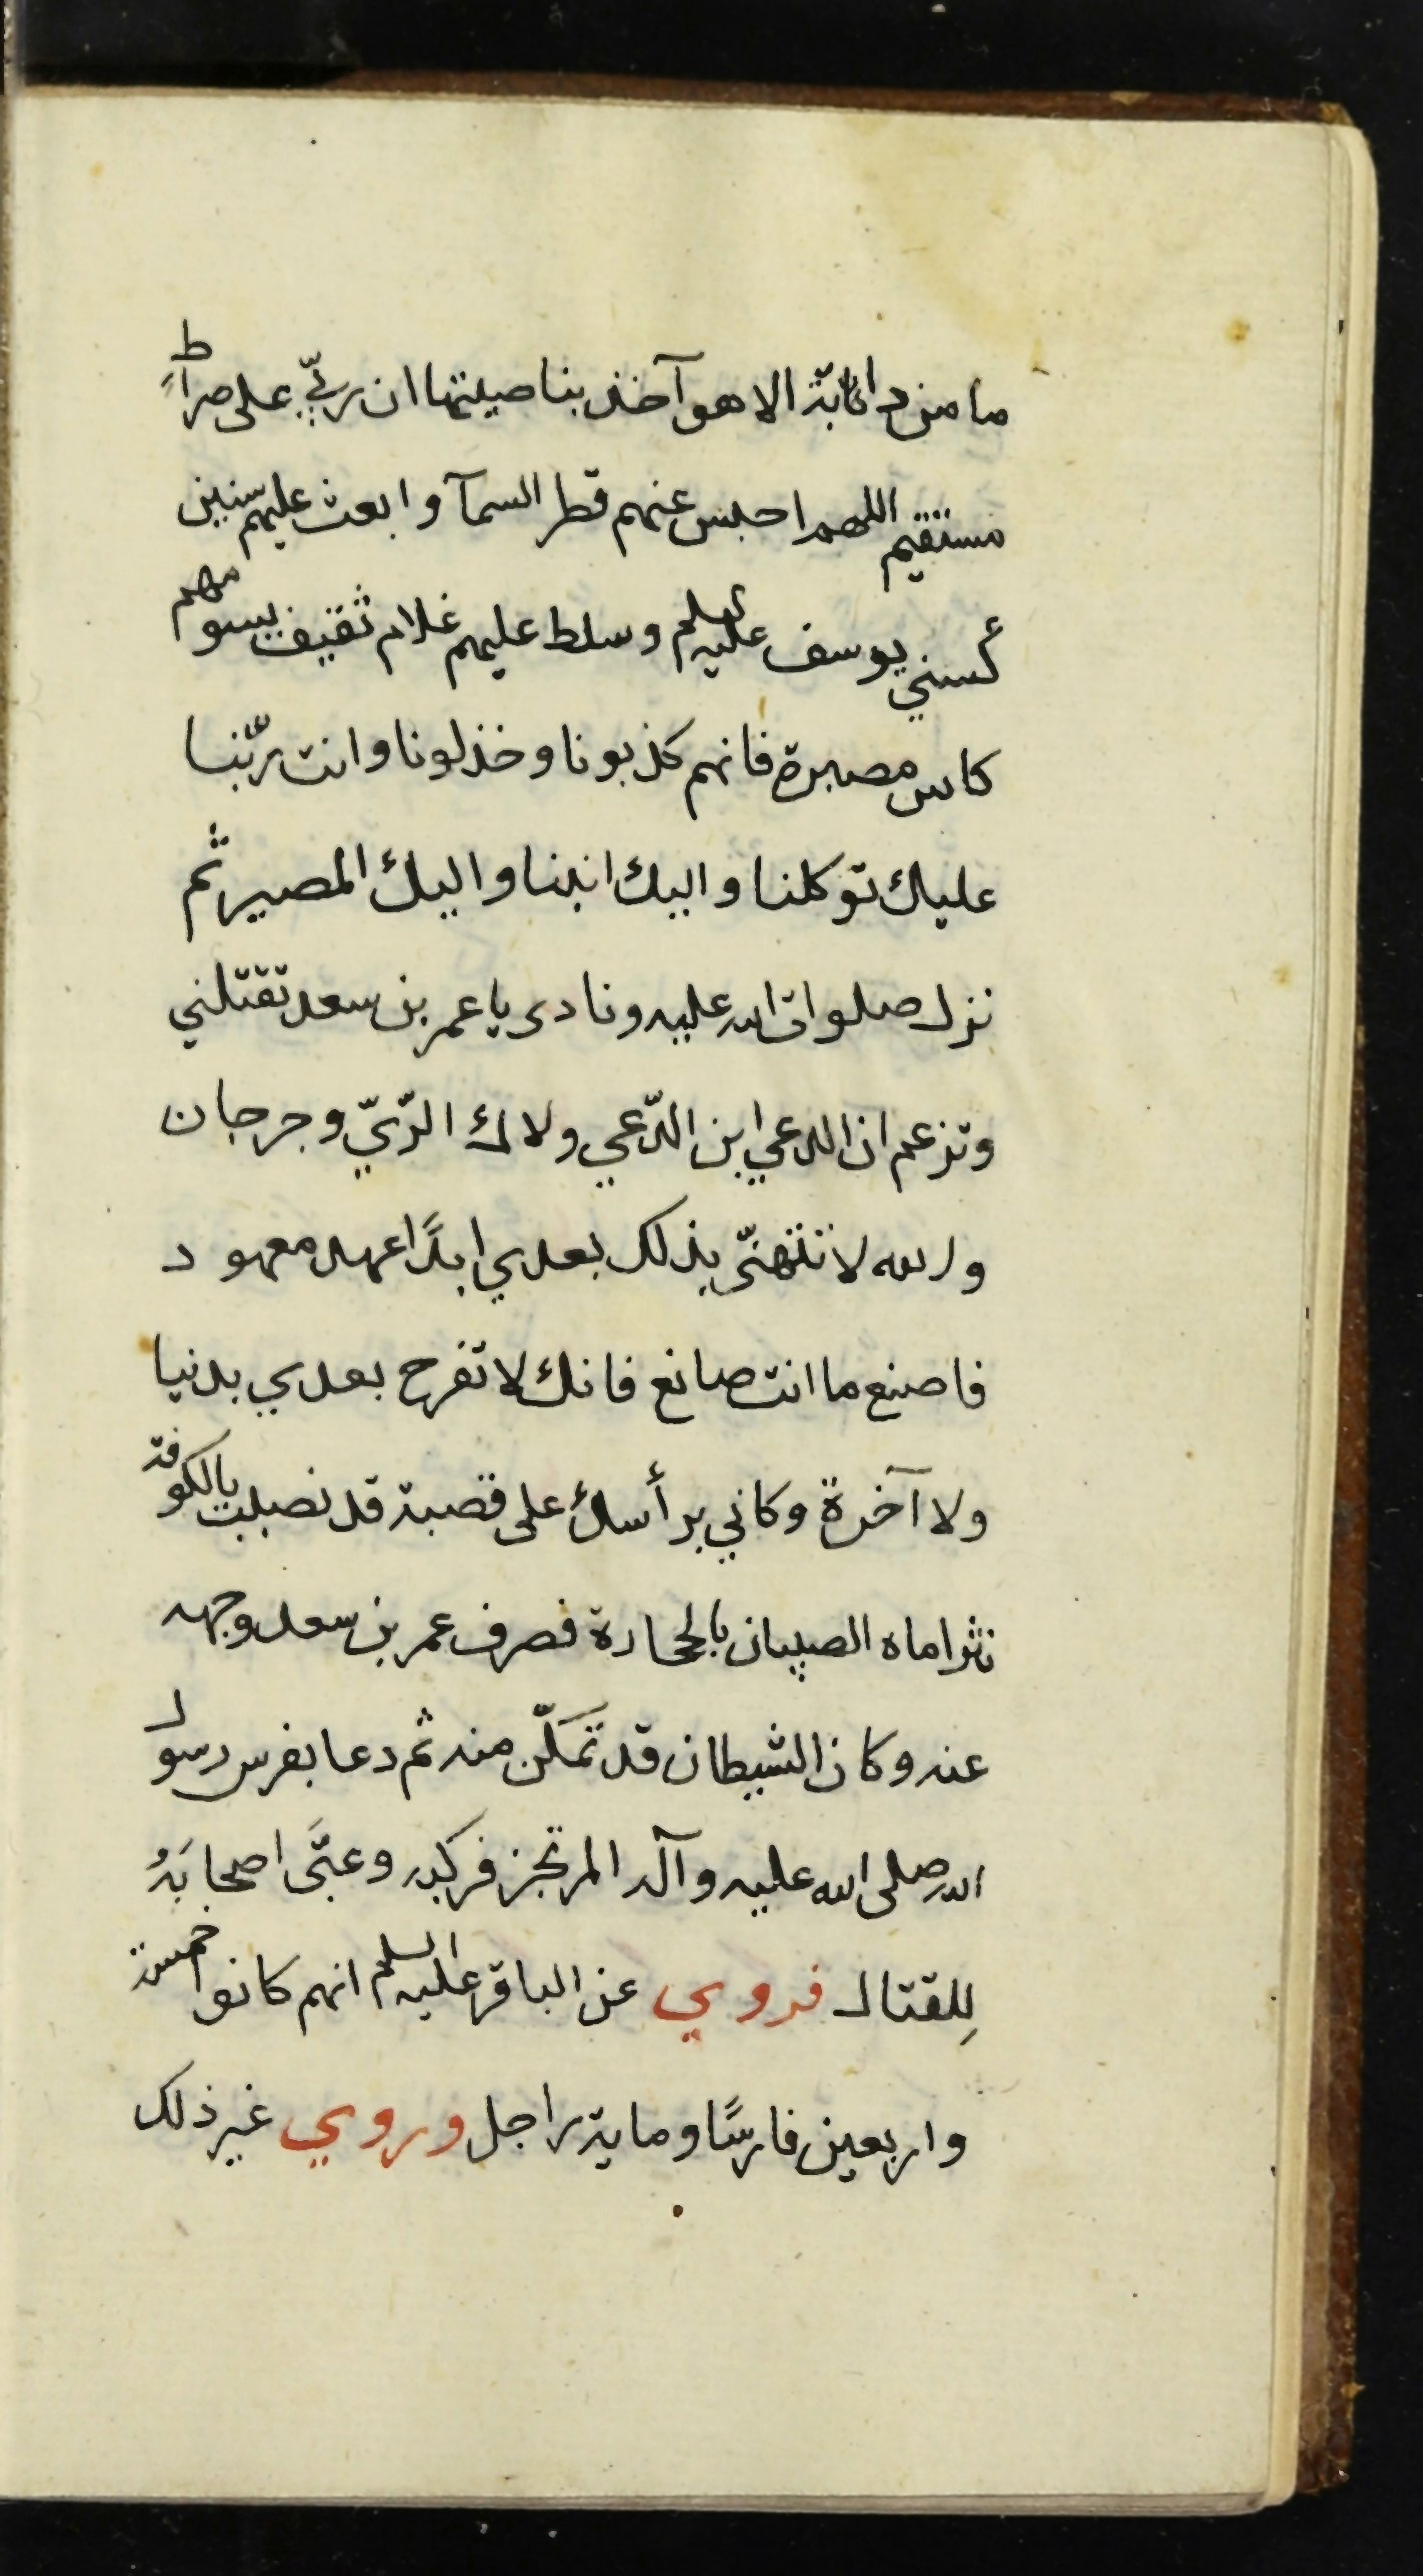 ما من دابة الا هو آخذ بناصيتها ان ربّي على صراطٍ
مستقيم اللهم احبس عنهم قطر السمآ وابعث عليهم سنين
كسني يوسف عليه السلم وسلط عليهم غلام ثقيف يسومهم
كاس مصبرة فانهم كذبونا وخذلونا وانت ربّنا
عليك توكلنا واليك انبنا واليك المصير ثم
نزل صلوات الله عليه ونادى يا عمر بن سعد تقتلني
وتزعم ان الدعي ابن الدّعي ولاك الرّيّ وجرجان
والله لا تتهنّى بذلك بعدي ابدًا عهد معهود
فاصنع ما انت صانع فانك لا تفرح بعدي بدنيا
ولا آخرة وكاني برأسك على قصبة قد نصبت بالكوفة
تتراماه الصبيان بالحجارة فصرف عمر بن سعد وجهه
عنه وكان الشيطان قد تمَكّن منه ثم دعا بفرس رسول
الله صلى الله عليه وآله المرتجز فركبه وعبَّى اصحابَهُ
لِلقتال فروي عن الباقر عليه السلم انهم كانوا خمسة
واربعين فارسًا وماية راجل وروي غير ذلك